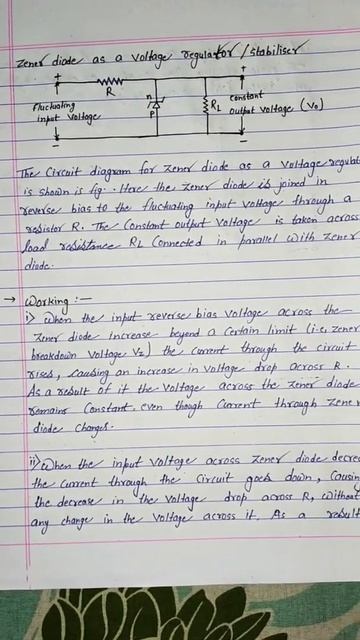 Zener diode as a voltage regulator / stabiliser
+
+
R
Fluctuating
input voltage
n
P
RL
constant
output voltage (Vo)
-
-
The Circuit diagram for zener diode as a voltage regulat
is shown is fig. . Here the zener diode is joined in
reverse bias to the fluctuating input voltage through a
resistor R. The Constant output voltage is taken across
load resistance RL Connected in parallel with zener
diode.
→ Working :—
i) When the input reverse bias voltage across the
zener diode increase beyond a certain limit (i.e. zener
breakdown voltage Vz) the current through the circuit
rises, causing an increase in voltage drop across R.
As a result of it the voltage across the zener diode
remains Constant, even though current through zener
diode changes.
ii) When the input voltage across zener diode decre
the current through the circuit goes down, causing
the decrease in the voltage drop across R, without
any change in the voltage across it. As a result